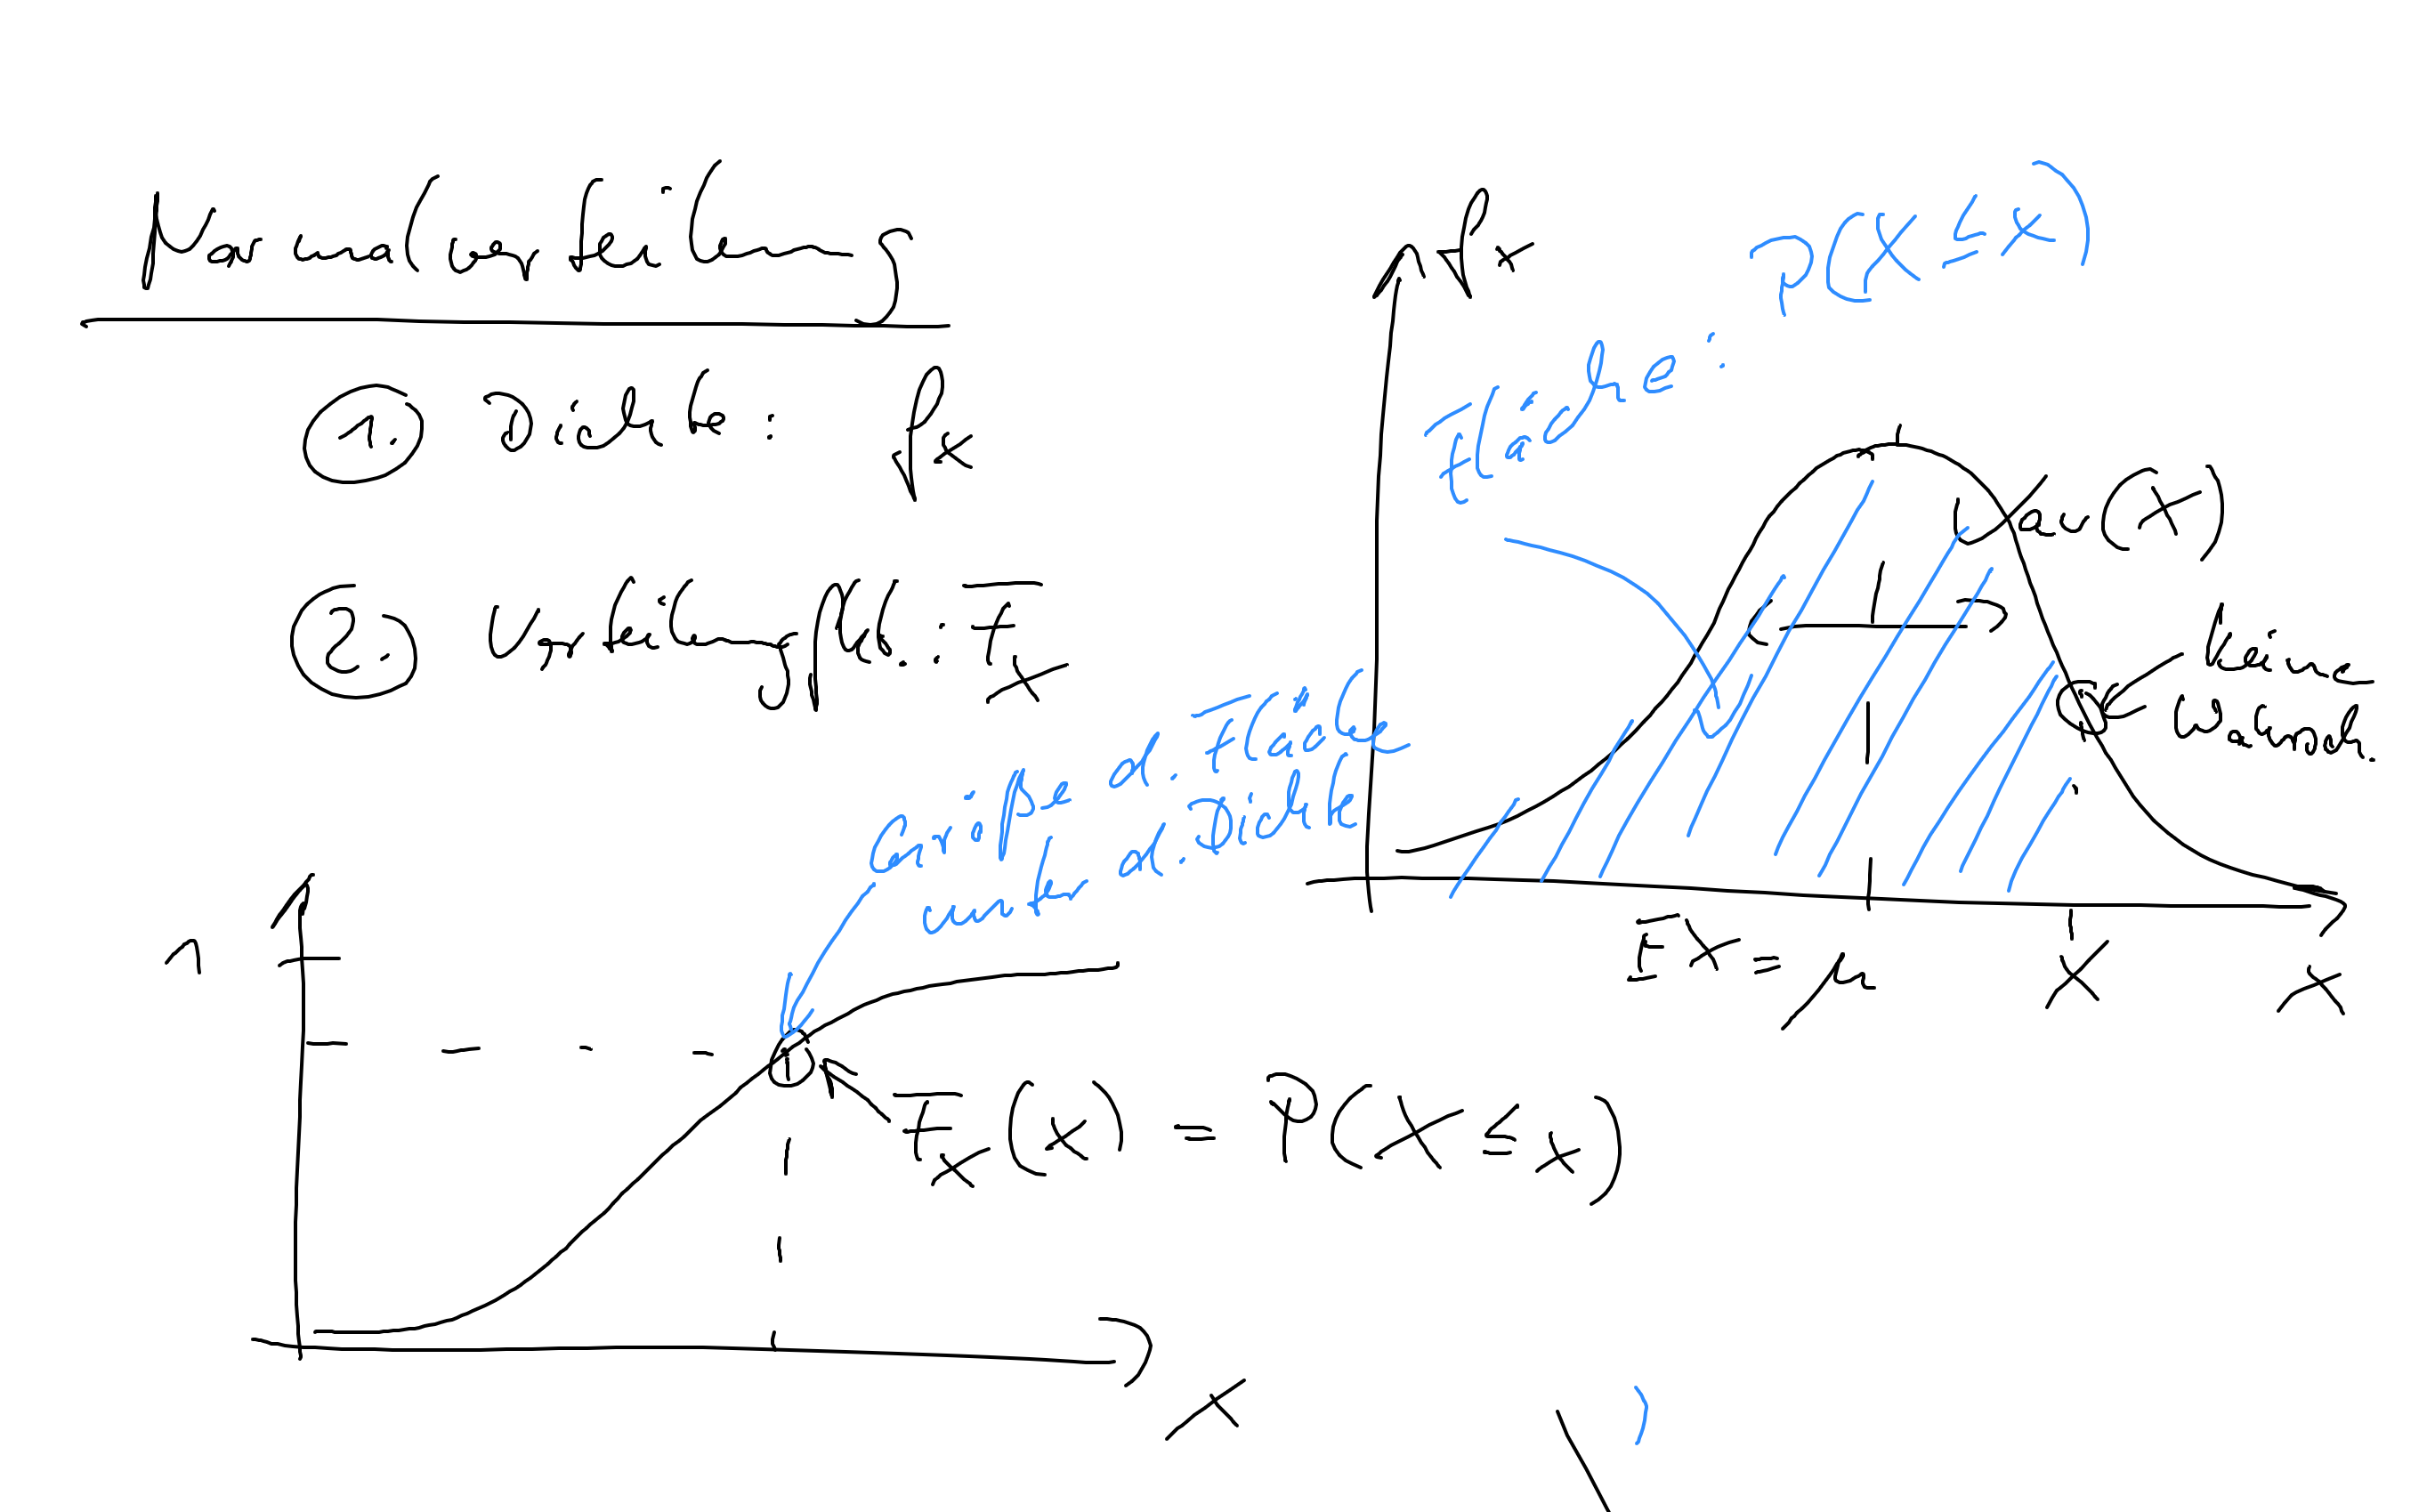 Normalverteilung
1. Dichte: fx
2. Verteilungsfkt.: Fx
fx
Fläche: P(X ≤ x)
Var(X)
Keine
Wahrsch.
EX = μ
x
x
Größe d. Fläche
unter d. Dichte
1
Fx(x) = P(X ≤ x)
x